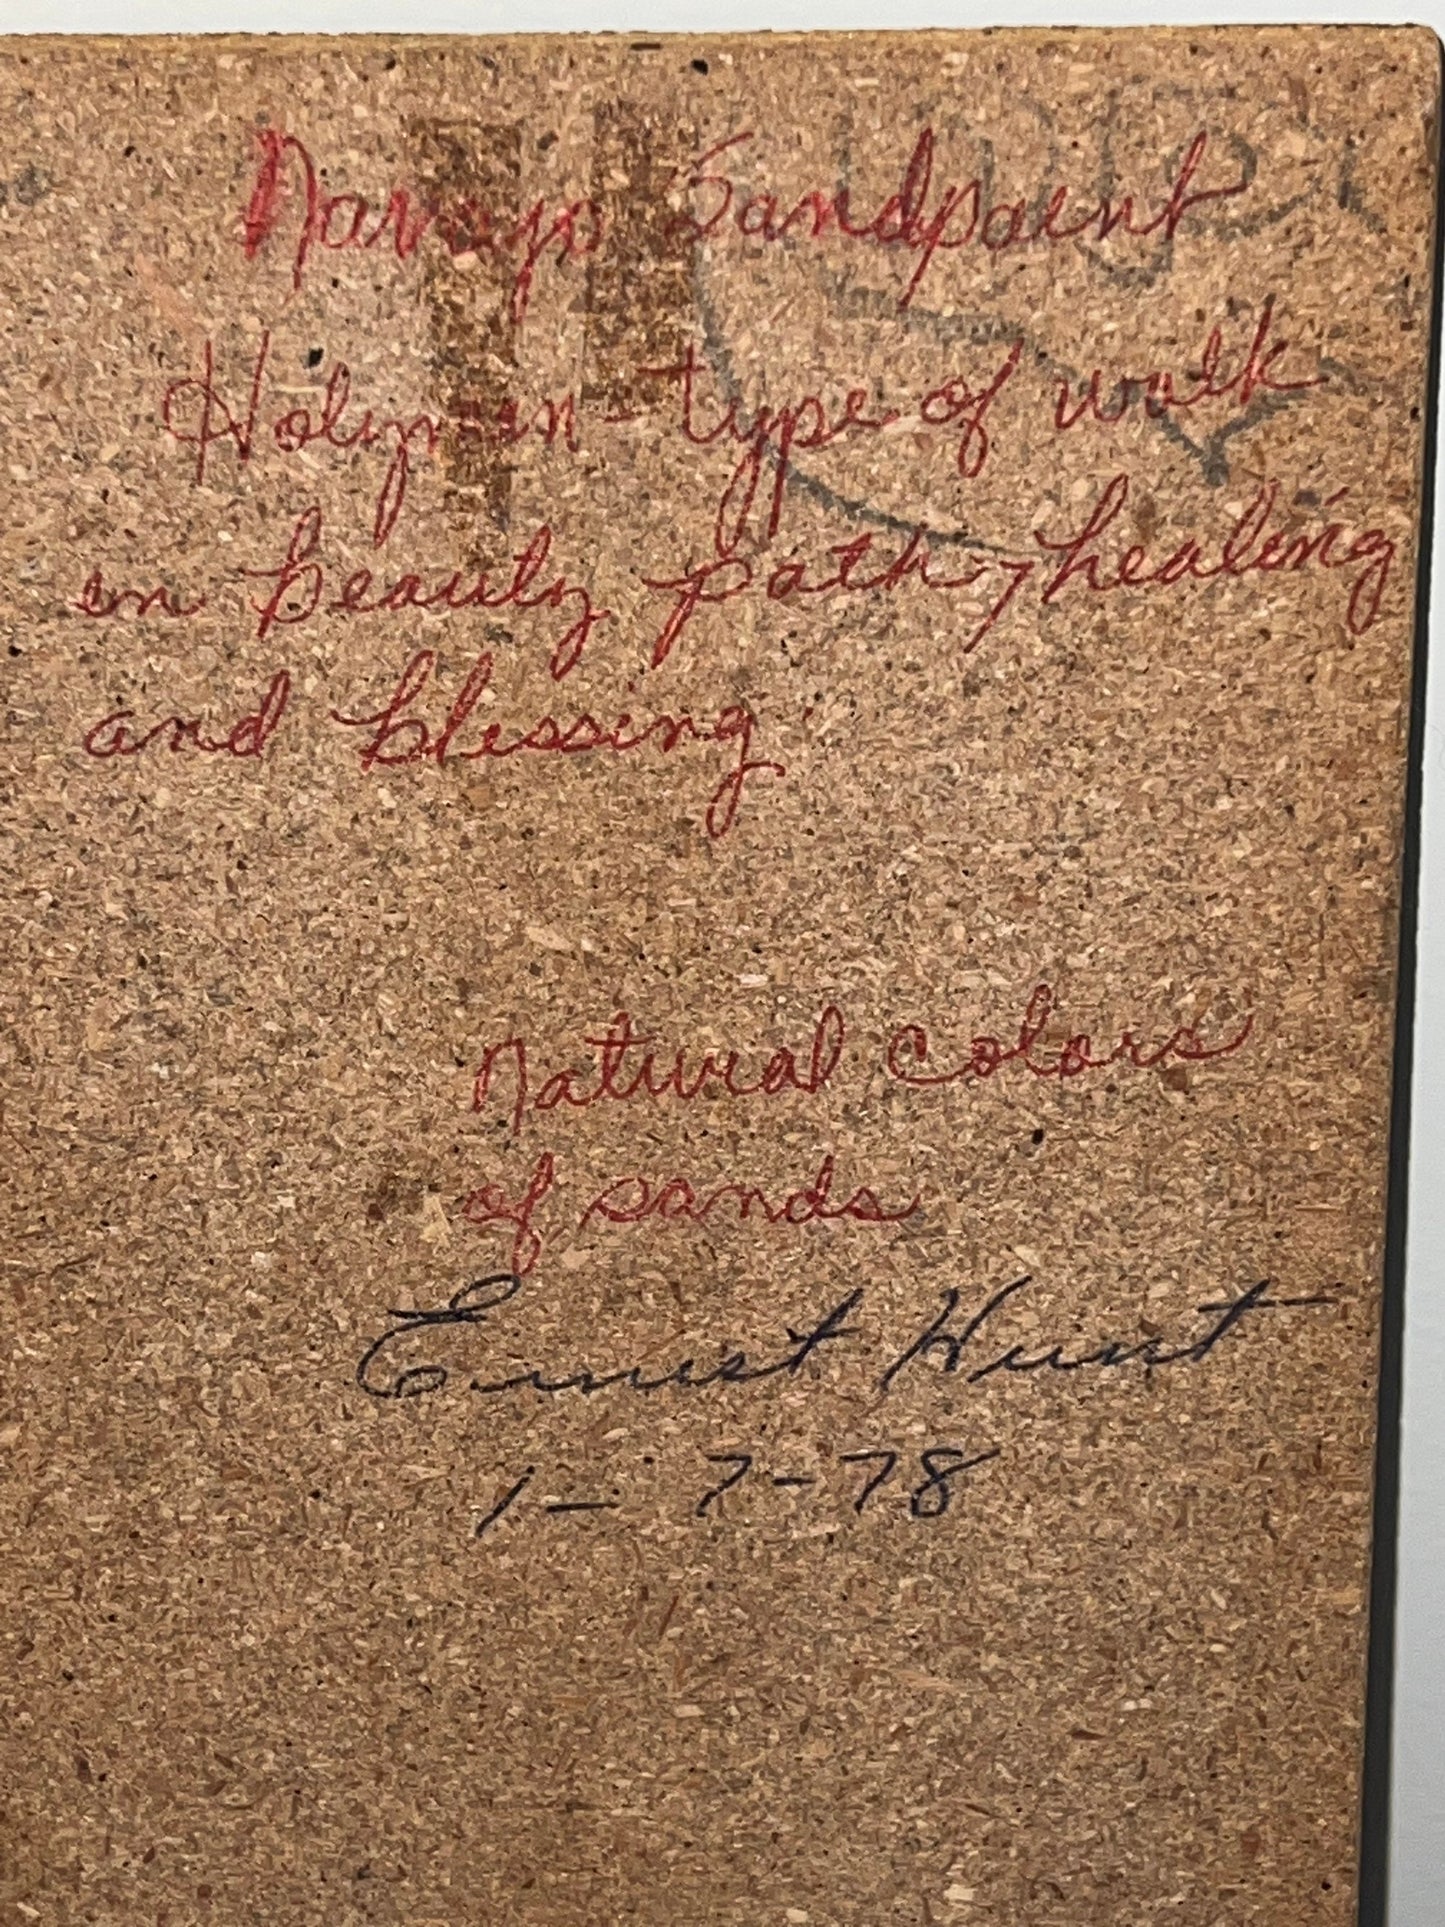 Navajo Sandpaint
Holymen - type of walk
in beauty path, healing
and blessing.
Natural colors
of sands
Ernest Hunt
1-7-78